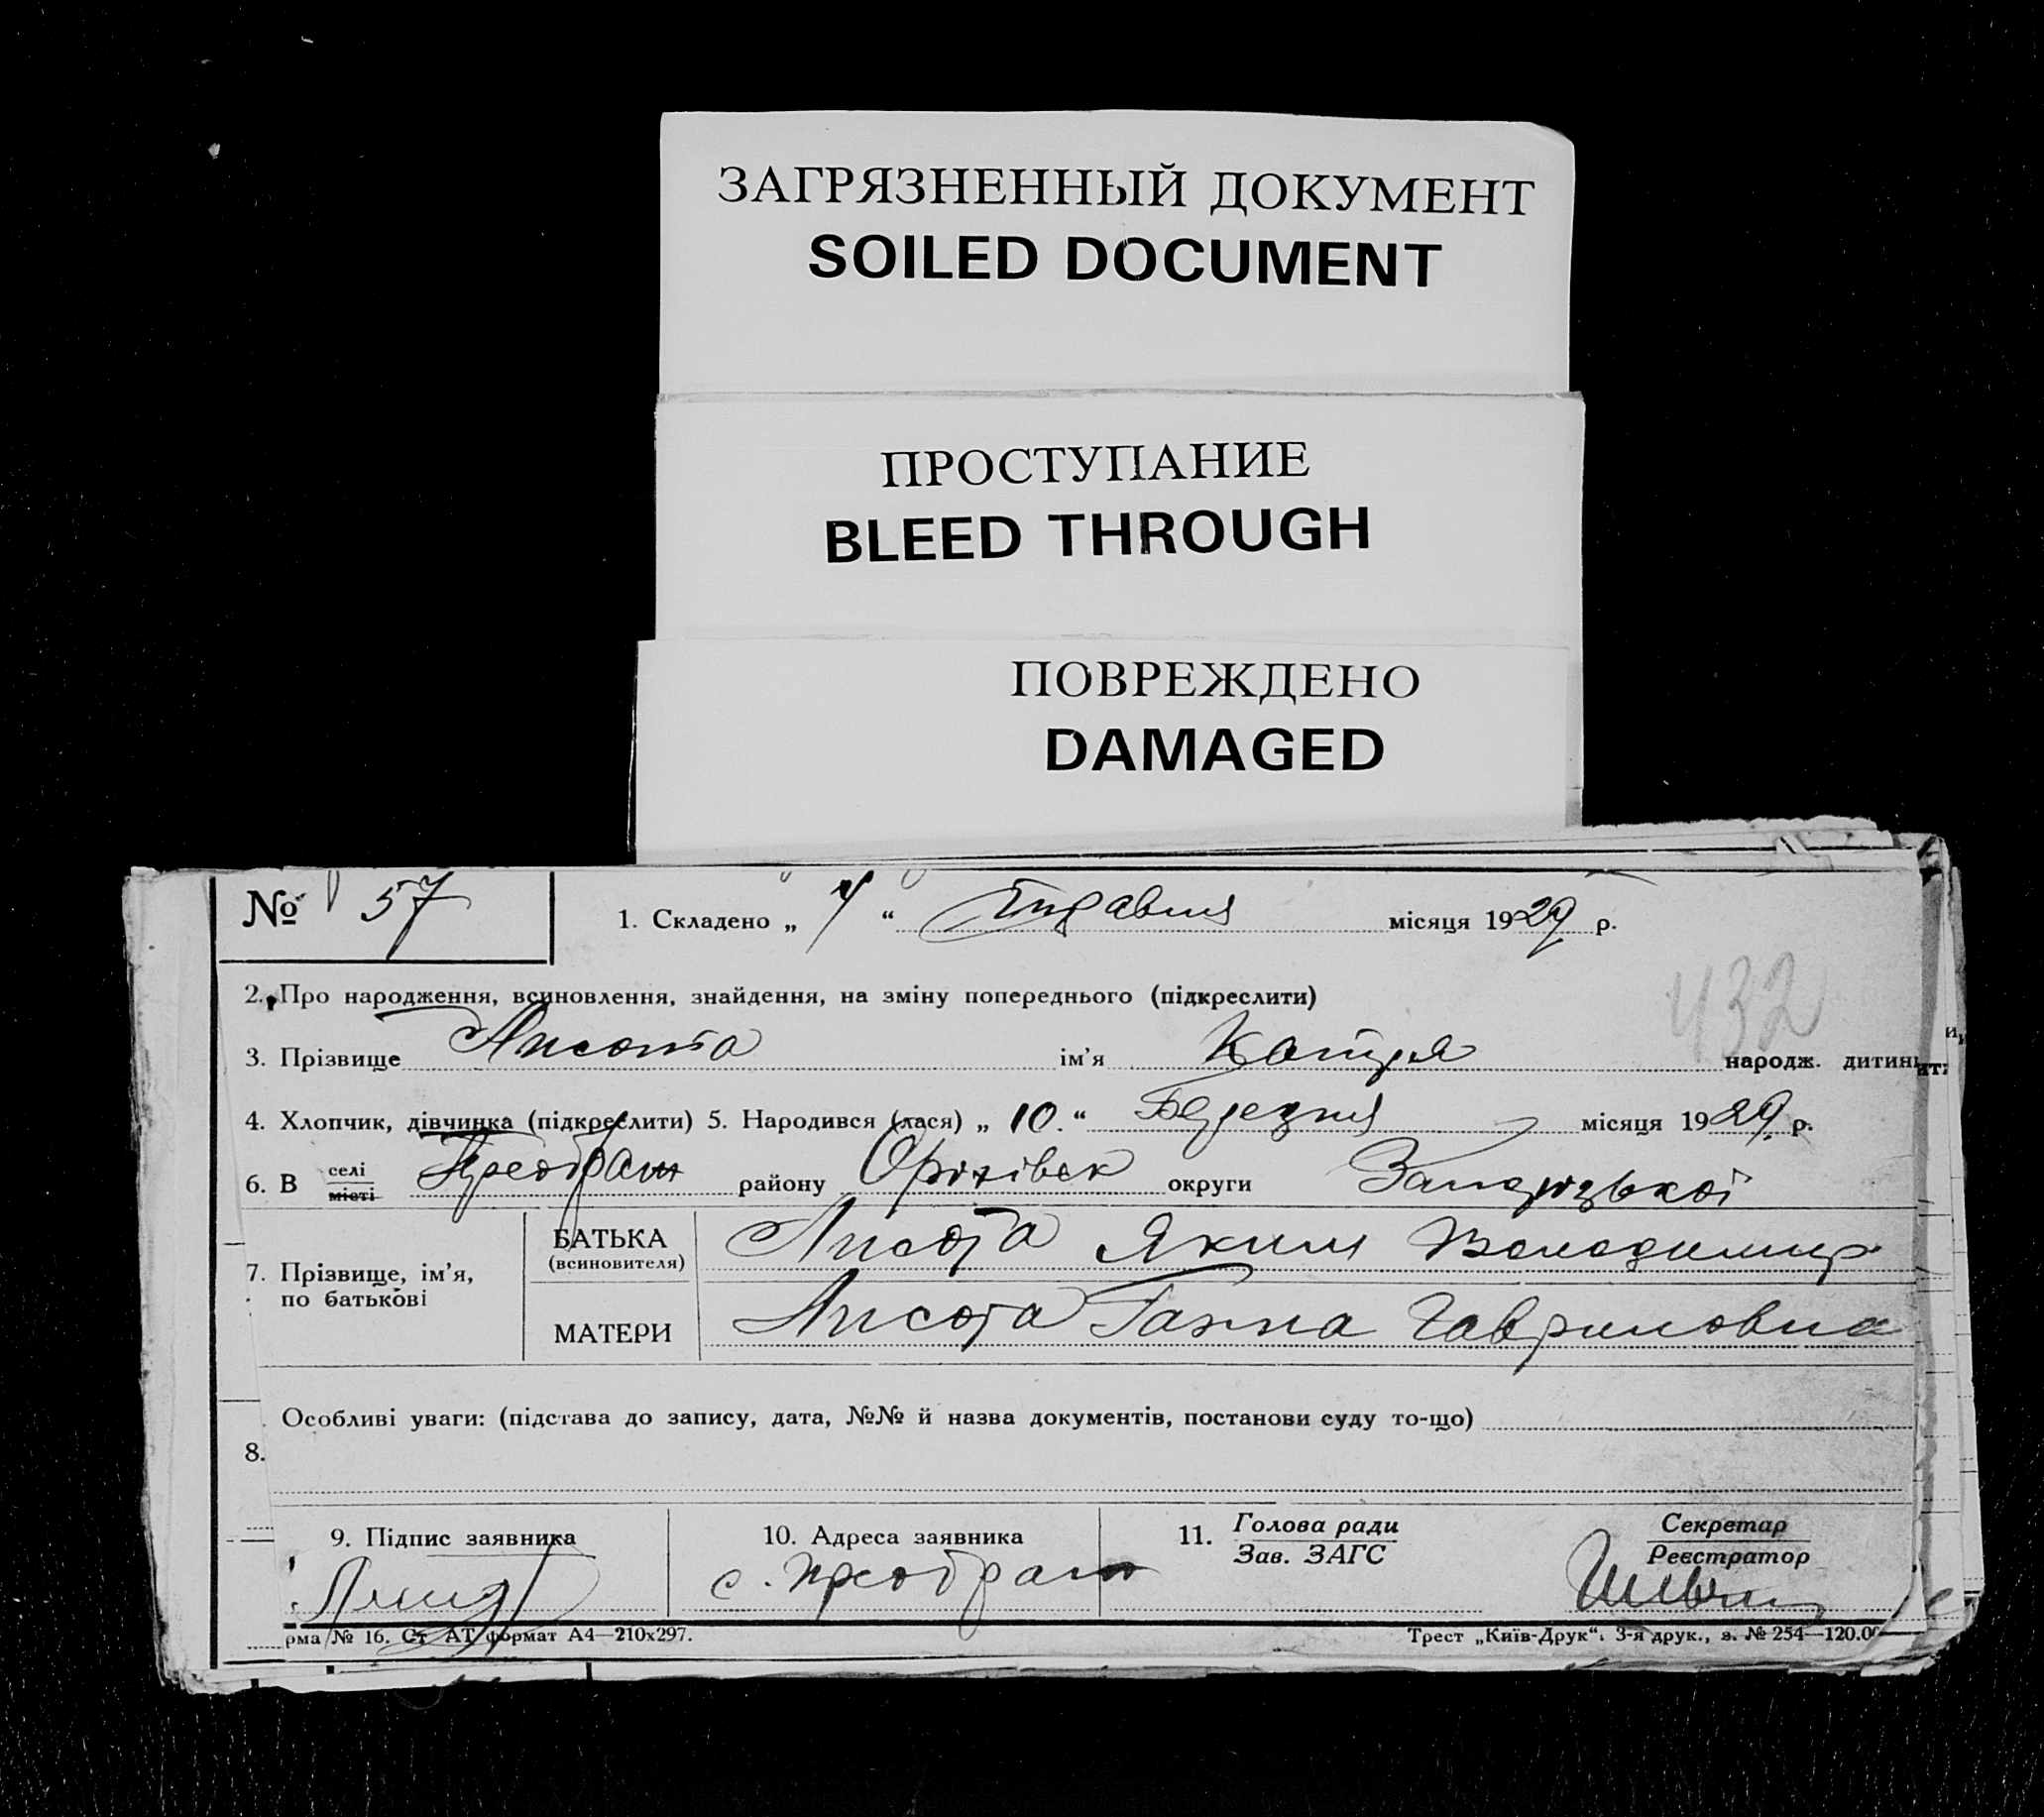 ЗАГРЯЗНЕННЫЙ ДОКУМЕНТ
SOILED DOCUMENT
ПРОСТУПАНИЕ
BLEED THROUGH
ПОВРЕЖДЕНО
DAMAGED
№ 57
1. Складено „ 4 “ Травня місяця 1929 р.
2. Про народження, всиновлення, знайдення, на зміну попереднього (підкреслити)
432
3. Прізвище Лисота ім'я Катря народж. дитини
4. Хлопчик, дівчинка (підкреслити) 5. Народився (лася) „ 10. “ Березня місяця 1929 р.
6. В селі місті Преображ району Оріхівськ округи Запорізької
7. Прізвище, ім'я, по батькові
БАТЬКА (всиновителя) Лисота Яким Володимир
МАТЕРИ Лисота Ганна Гавриловна
8. Особливі уваги: (підстава до запису, дата, №№ й назва документів, постанови суду то-що)
9. Підпис заявника
10. Адреса заявника
с. Преображ
11. Голова ради
Зав. ЗАГС
Секретар
Реєстратор
рма № 16. Ст АТ формат А4—210х297.
Трест „Київ-Друк“. 3-я друк., з. № 254—120.00